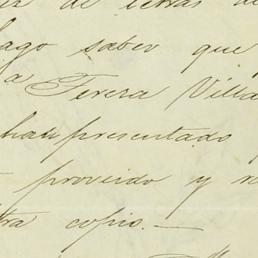 de letras de
hago saber que
a Teresa Villa
han presentado
proveido y
tra copio.—